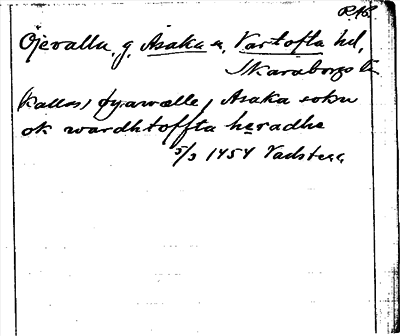 R.A.P.
Öjevalla, g. Åsaka s, Vartofta hd,
Skaraborgs län
(kallas) öyawælle, Asaka sokn
ok wardhtoffta heradhe
5/3 1454 Vadstena